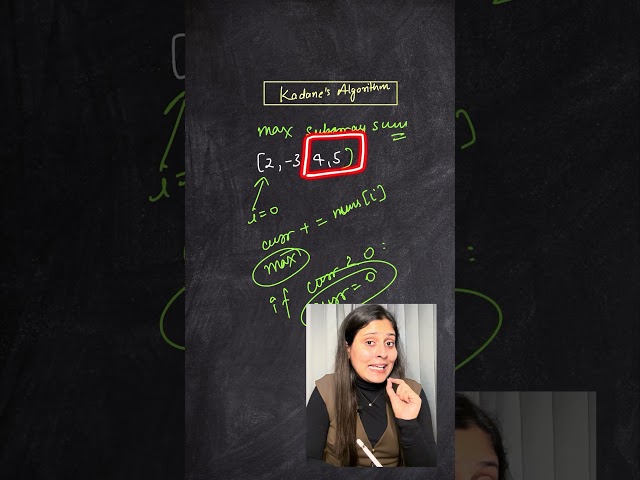 Kadane's Algorithm
max subarray sum
[2, -3, 4, 5]
i=0
curr + = nums[i]
max
if curr < 0 :
curr = 0